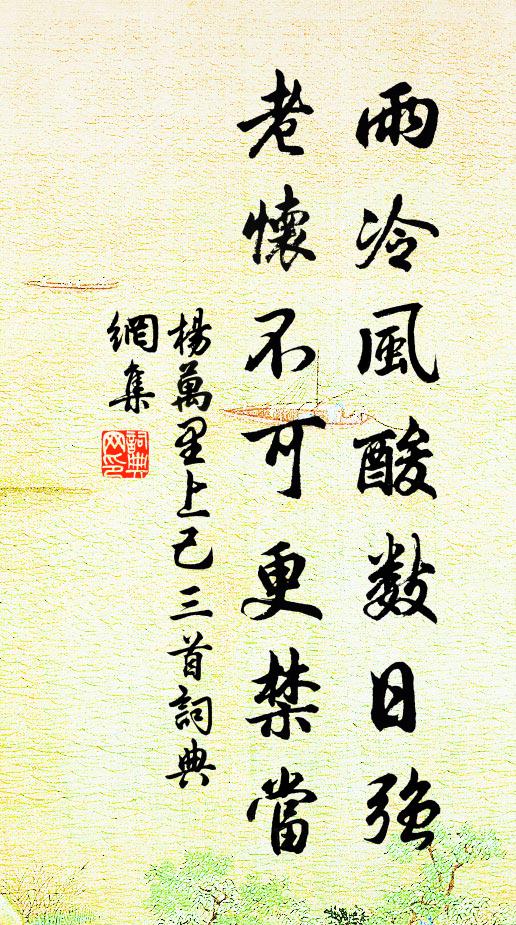 雨冷風酸數日強
老懷不可更禁當
楊萬里上己三首詞典
網集
詞典
网印